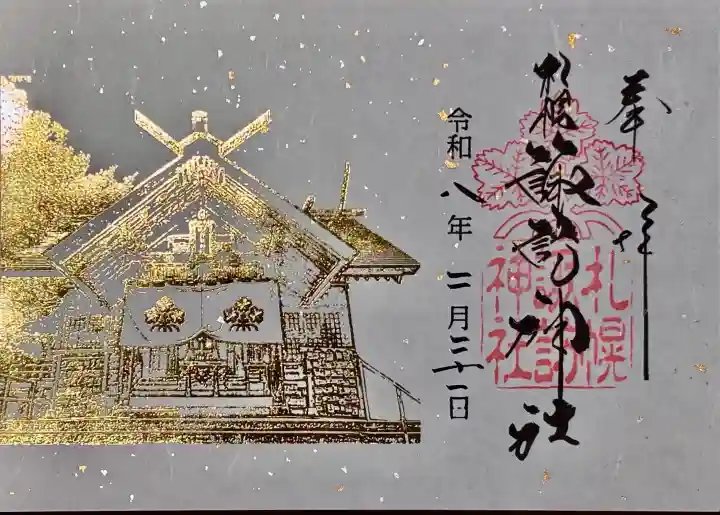 奉拝
札幌諏訪神社
札幌
諏訪
神社
令和八年二月二十一日